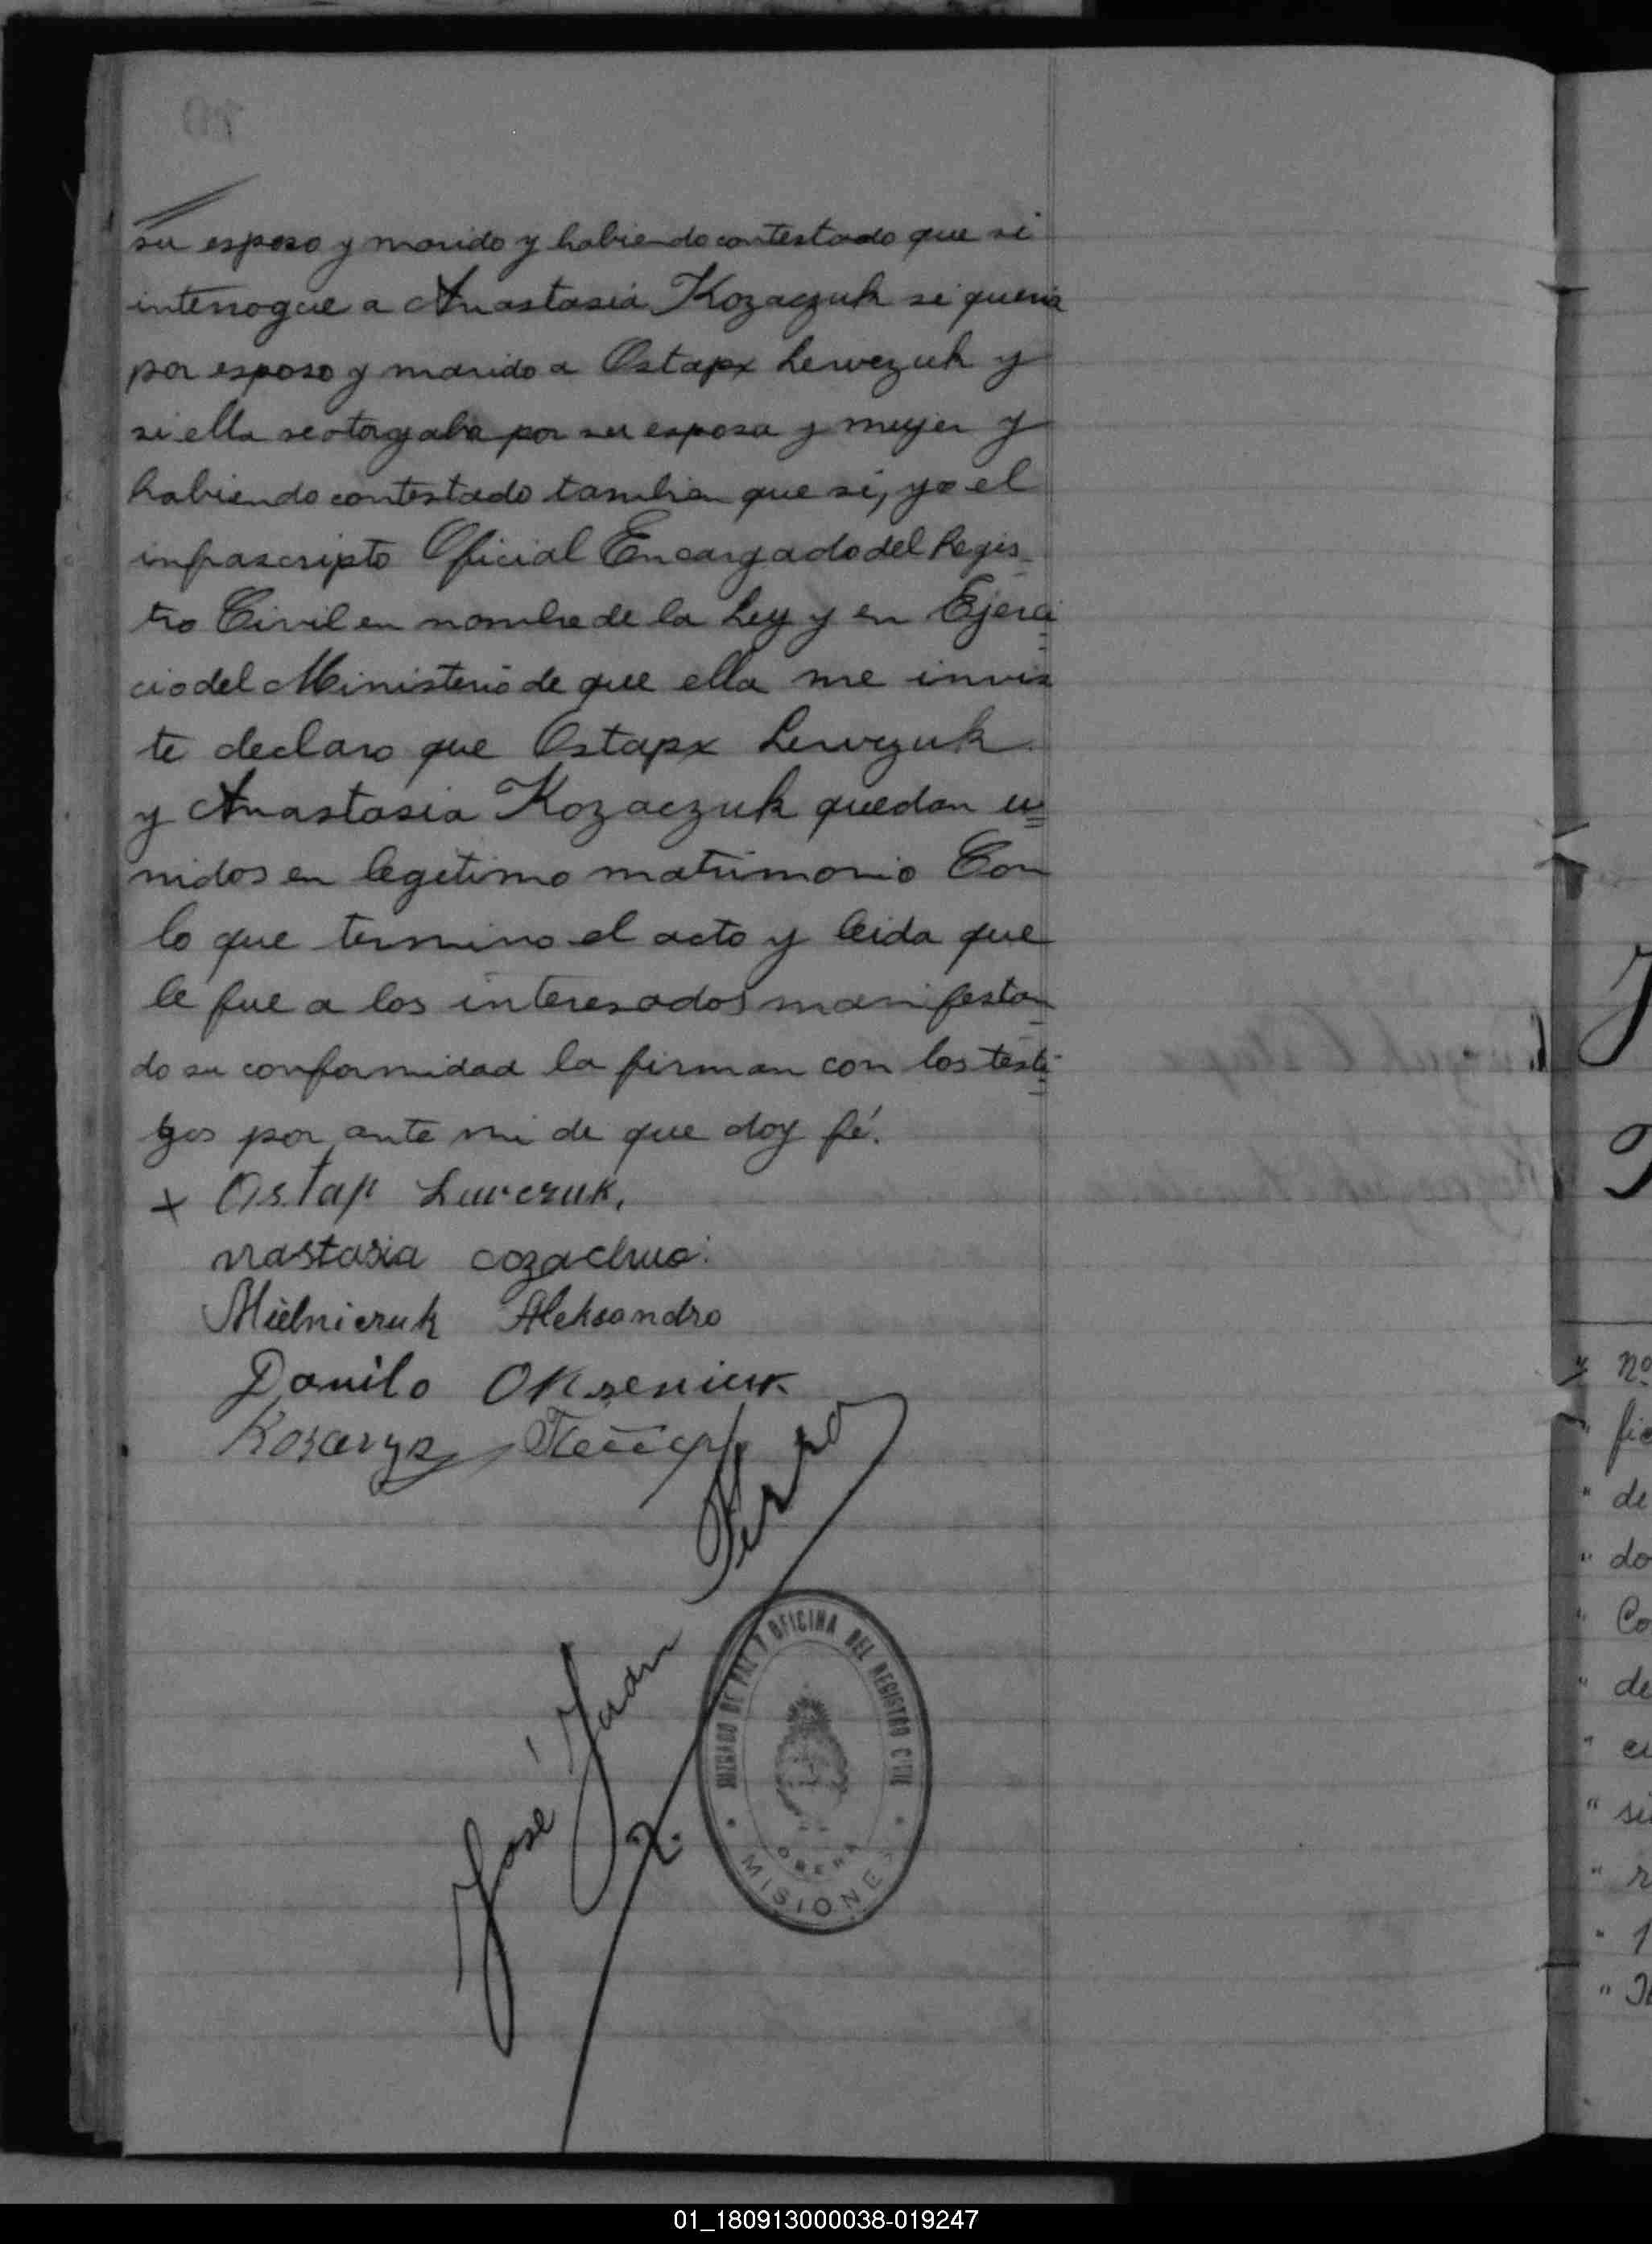 su esposo y marido y habiendo contestado que si
interrogue a Anastasia Kozaczuk si queria
por esposo y marido a Ostapx Lewczuk y
si ella se otorgaba por su esposa y mujer y
habiendo contestado tambien que si, yo el
infrascripto Oficial Encargado del Regis_
tro Civil en nombre de la Ley y en Ejerci
cio del Ministerio de que ella me invis
te declaro que Ostapx Lewczuk
y Anastasia Kozaczuk quedan u=
nidos en legitimo matrimonio Con
lo que termino el acto y leida que
le fue a los interesados manifestan
do su conformidad la firman con los testi=
gos por ante mi de que doy fé.
x Ostap Lewczuk.
nastasia cozachuc.
Mielniczuk Aleksandro
Danilo Okseniuk
José Juan
JUZGADO DE PAZ Y OFICINA DEL REGISTRO CIVIL
OBERA
MISIONES
Nº
de
do
Co
de
si
01_180913000038-019247